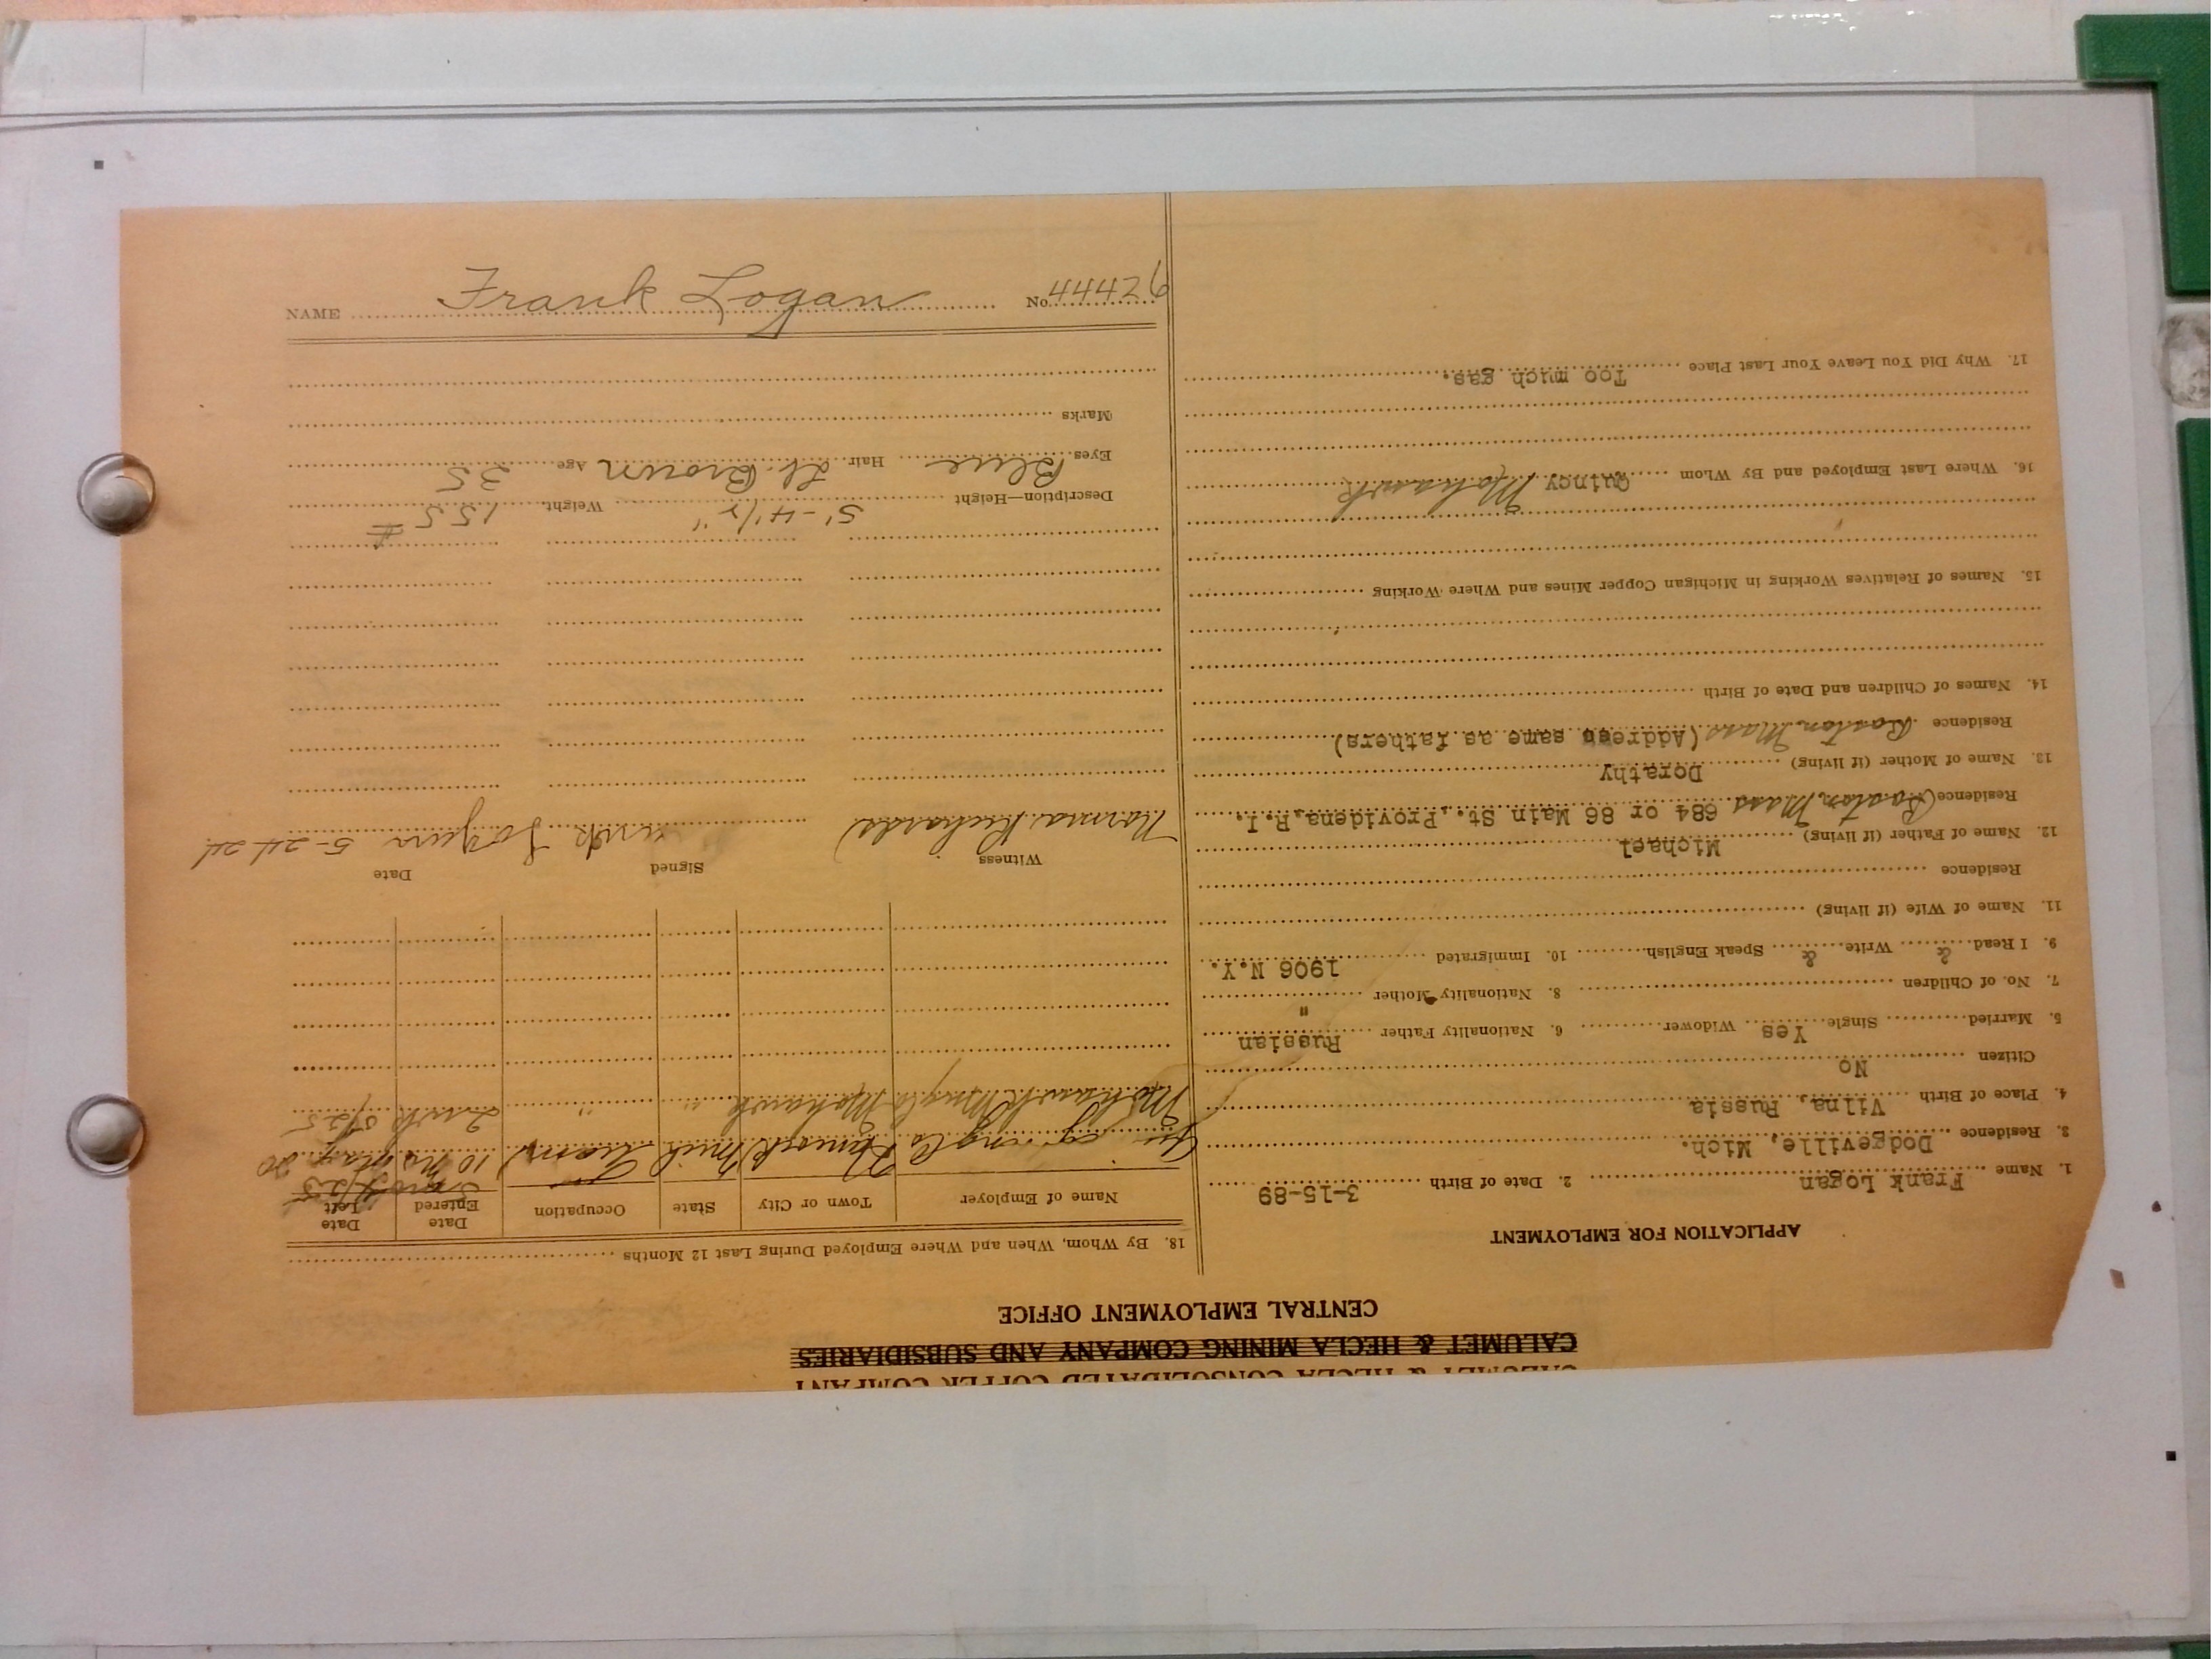 CALUMET & HECLA CONSOLIDATED COPPER COMPANY
CALUMET & HECLA MINING COMPANY AND SUBSIDIARIES
CENTRAL EMPLOYMENT OFFICE
APPLICATION FOR EMPLOYMENT
1. Name Frank Logan 2. Date of Birth 3-15-89
3. Residence Dodgeville, Mich.
4. Place of Birth Vilna, Russia
Citizen No
5. Married Single Yes Widower 6. Nationality Father Russian
7. No. of Children 8. Nationality Mother "
9. I Read & Write & Speak English 10. Immigrated 1906 N.Y.
11. Name of Wife (if living)
Residence
12. Name of Father (if living) Michael
Residence Boston, Mass 684 or 86 Main St., Providena, R.I.
13. Name of Mother (if living) Dorathy
Residence Boston, Mass (Address same as fathers)
14. Names of Children and Date of Birth
15. Names of Relatives Working in Michigan Copper Mines and Where Working
16. Where Last Employed and By Whom Quincy Mohawk
17. Why Did You Leave Your Last Place Too much gas.
18. By Whom, When and Where Employed During Last 12 Months
Name of Employer Town or City State Occupation Date Entered Date Left
Hancock Mich Tram 10 Mo May 20
Mohawk Mng Co Mohawk " " 2 wk 5/25
Witness Signed Date
Norma Richards Logan 5-24 24
Description—Height 5'-4 1/2" Weight 155 #
Eyes Blue Hair Lt. Brown Age 35
Marks
NAME Frank Logan No. 44426